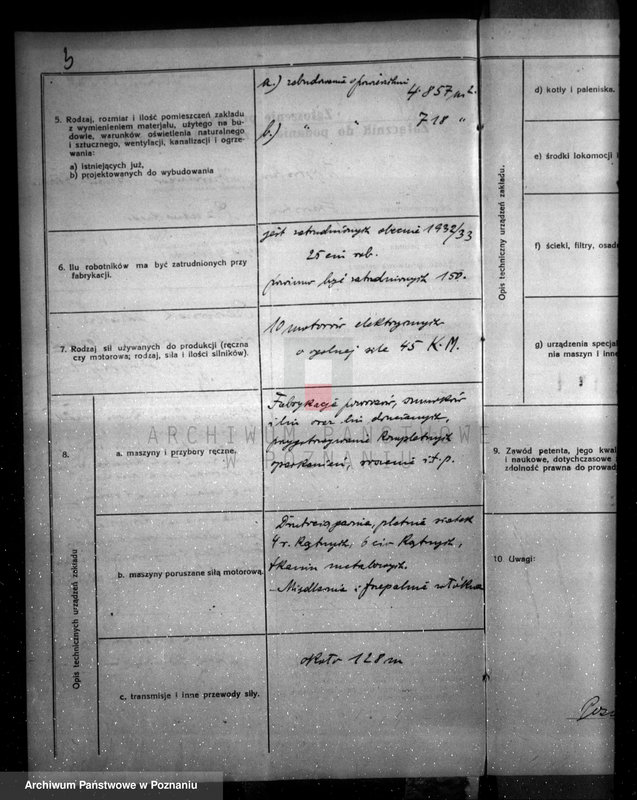 3
5. Rodzaj, rozmiar i ilość pomieszczeń zakładu
z wymienieniem materjału, użytego na bu-
dowie, warunków oświetlenia naturalnego
i sztucznego, wentylacji, kanalizacji i ogrze-
wania:
a) istniejących już,
b) projektowanych do wybudowania
a.) zabudowania o powierzchni
4857 m2.
b.) " " 718 "
6. Ilu robotników ma być zatrudnionych przy
fabrykacji.
jest zatrudnionych obecnie 1932/33
25 rob.
powinno być zatrudnionych 150.
7. Rodzaj sił używanych do produkcji (ręczna
czy motorowa; rodzaj, siła i ilości silników).
10 motorów elektrycznych
o ogólnej sile 45 K.M.
8.
Opis technicznych urządzeń zakładu
a. maszyny i przybory ręczne,
Fabrykacja powrozów, sznurków
i lin oraz lin drucianych,
przygotowywanie kompletnych
i t. p.
b. maszyny poruszane siłą motorową.
4 r. kątnych, 6 kątnych,
tkanin metalowych.
c, transmisje i inne przewody siły.
około 128 m
Opis techniczny urządzeń zakładu.
d) kotły i paleniska.
e) środki lokomocji i
f) ścieki, filtry, osad
g) urządzenia specjal
nia maszyn i inne
9. Zawód petenta, jego kwal
i naukowe, dotychczasowe
zdolność prawna do prowad
10. Uwagi:
Poz
ARCHIWUM PAŃSTWOWE
W POZNANIU
Archiwum Państwowe w Poznaniu